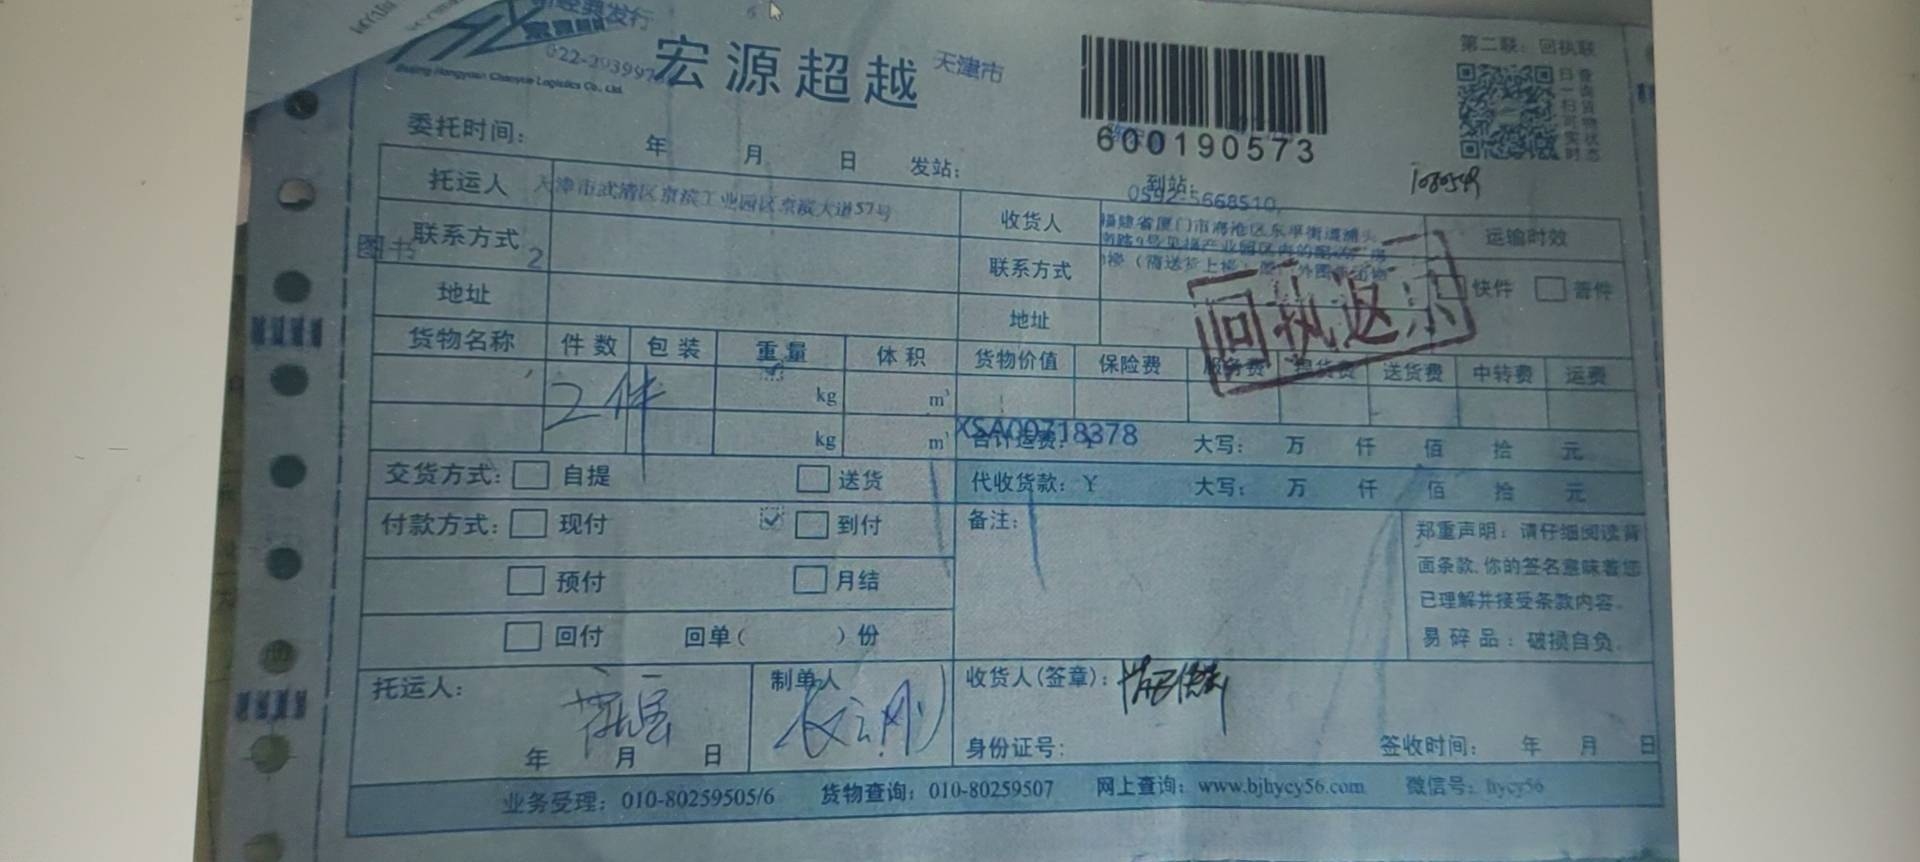 经典发行
022-293997
宏源超越
天津市
Beijing Hongyuan Chaoyue Logistics Co., Ltd.
600190573
第二联：回执联
扫一扫可实时
查询货物状态
委托时间： 年 月 日 发站： 到站：
0592-5668510,
托运人 天津市武清区京滨工业园区京滨大道57号
收货人 福建省厦门市海沧区东孚街道浦头
运输时效
联系方式
图书 2
联系方式
快件 普件
地址
地址
回执返
货物名称 件数 包装 重量 体积 货物价值 保险费 服务费 提货费 送货费 中转费 运费
2件
kg m³
kg m³
XSA00718378
合计运费：¥ 大写： 万 仟 佰 拾 元
交货方式： 自提 送货
代收货款：¥ 大写： 万 仟 佰 拾 元
付款方式： 现付 到付
备注：
预付 月结
回付 回单（ ）份
郑重声明：请仔细阅读背
面条款,你的签名意味着您
已理解并接受条款内容。
易碎品：破损自负。
托运人：
年 月 日
制单人
收货人(签章)：
身份证号：
签收时间： 年 月 日
业务受理：010-80259505/6 货物查询：010-80259507 网上查询：www.bjhycy56.com 微信号：hycy56